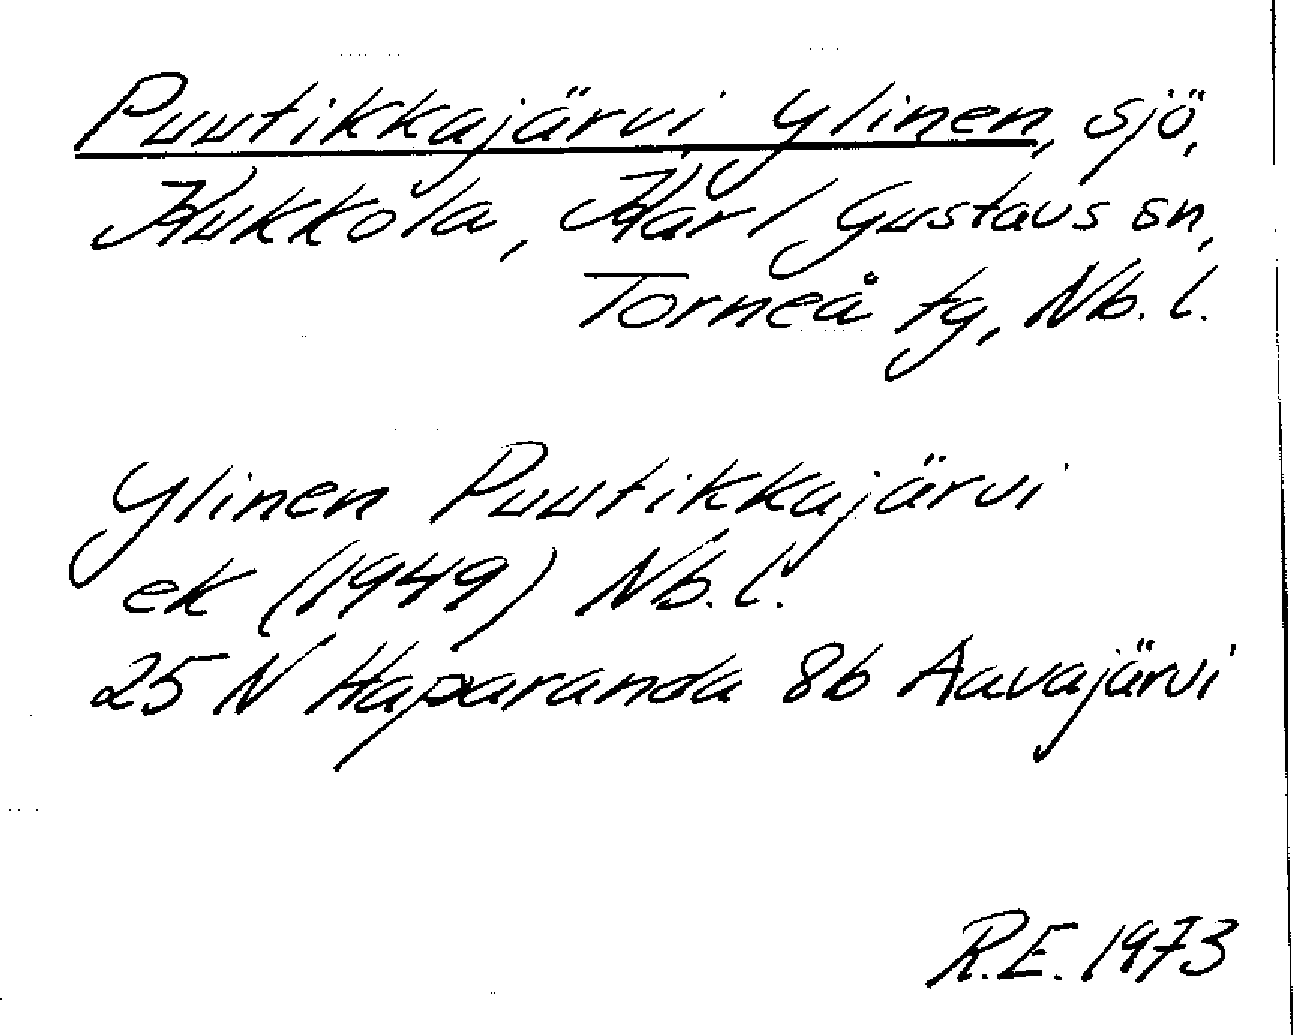 Puutikkajärvi, Ylinen, sjö,
Kukkola, Karl Gustavs sn,
Torneå tg, Nb. l.
Ylinen Puutikkajärvi
ek (1949) Nb. l.
25 N Haparanda 8b Aavajärvi
R.E. 1973